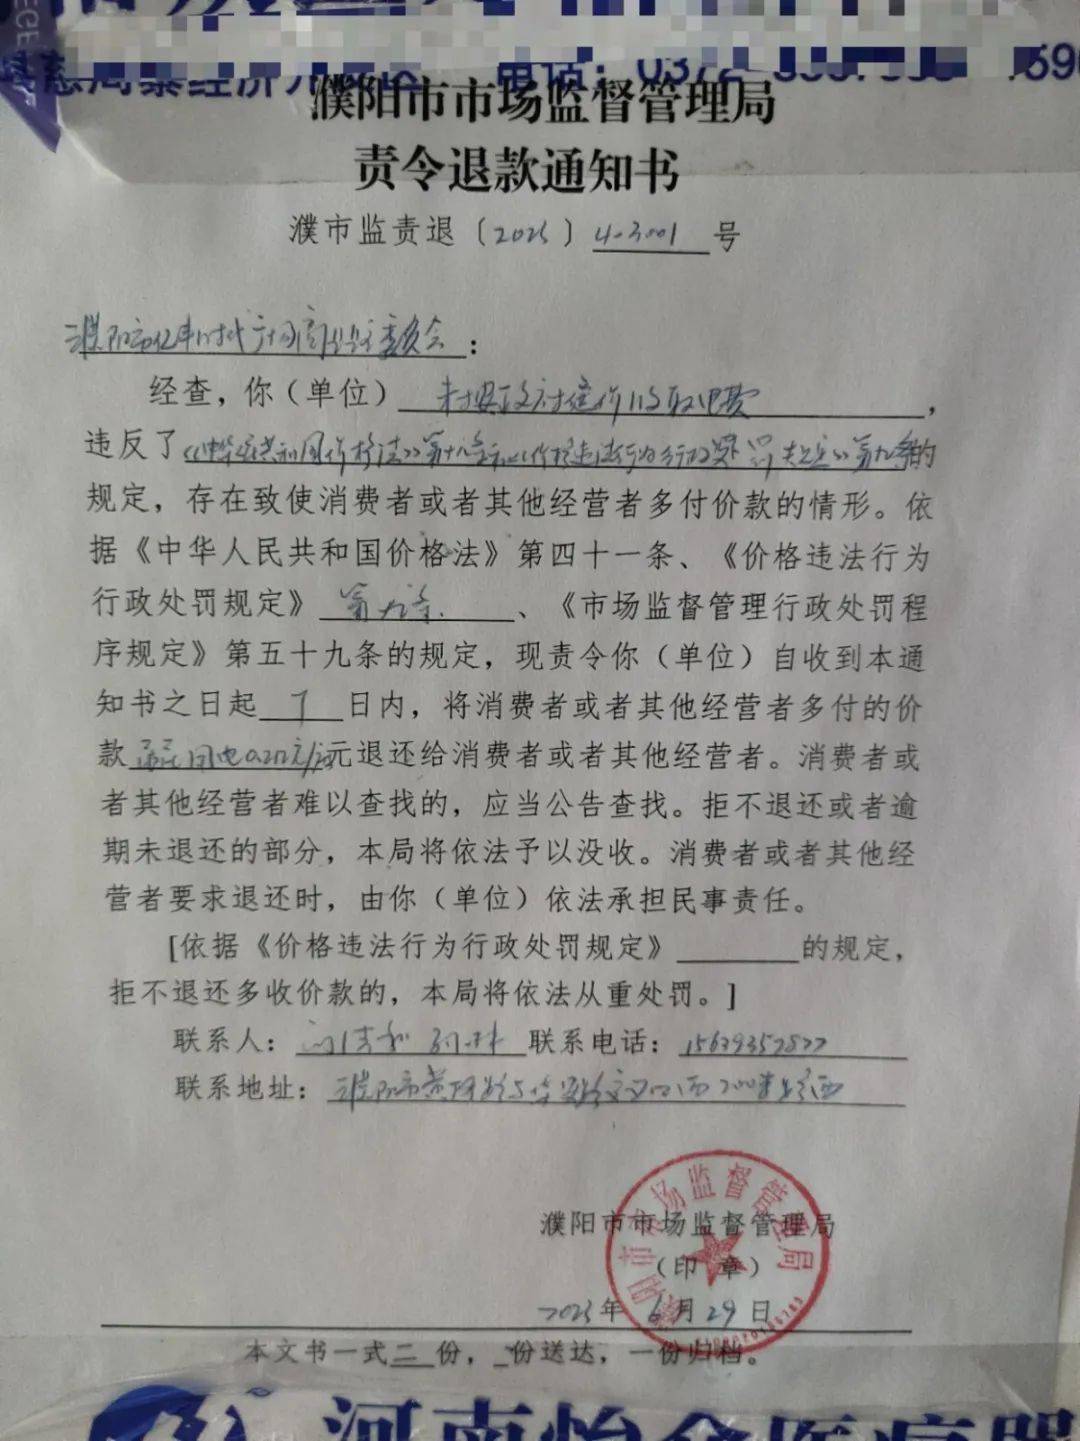 电话：0372
濮阳市市场监督管理局
责令退款通知书
濮市监责退〔2023〕4-3001号
濮阳市亿丰时代广场商业管委会：
经查，你（单位）未按政府定价收取电费，
违反了《中华人民共和国价格法》第十二条和《价格违法行为行政处罚规定》第九条的
规定，存在致使消费者或者其他经营者多付价款的情形。依
据《中华人民共和国价格法》第四十一条、《价格违法行为
行政处罚规定》第九条、《市场监督管理行政处罚程
序规定》第五十九条的规定，现责令你（单位）自收到本通
知书之日起7日内，将消费者或者其他经营者多付的价
款元退还给消费者或者其他经营者。消费者或
者其他经营者难以查找的，应当公告查找。拒不退还或者逾
期未退还的部分，本局将依法予以没收。消费者或者其他经
营者要求退还时，由你（单位）依法承担民事责任。
[依据《价格违法行为行政处罚规定》的规定，
拒不退还多收价款的，本局将依法从重处罚。]
联系人： 联系电话：
联系地址：濮阳市
濮阳市市场监督管理局
（印 章）
2023年6月29日
本文书一式二份，份送达，一份归档。
濮阳市市场监督管理局
河南怡众医疗器